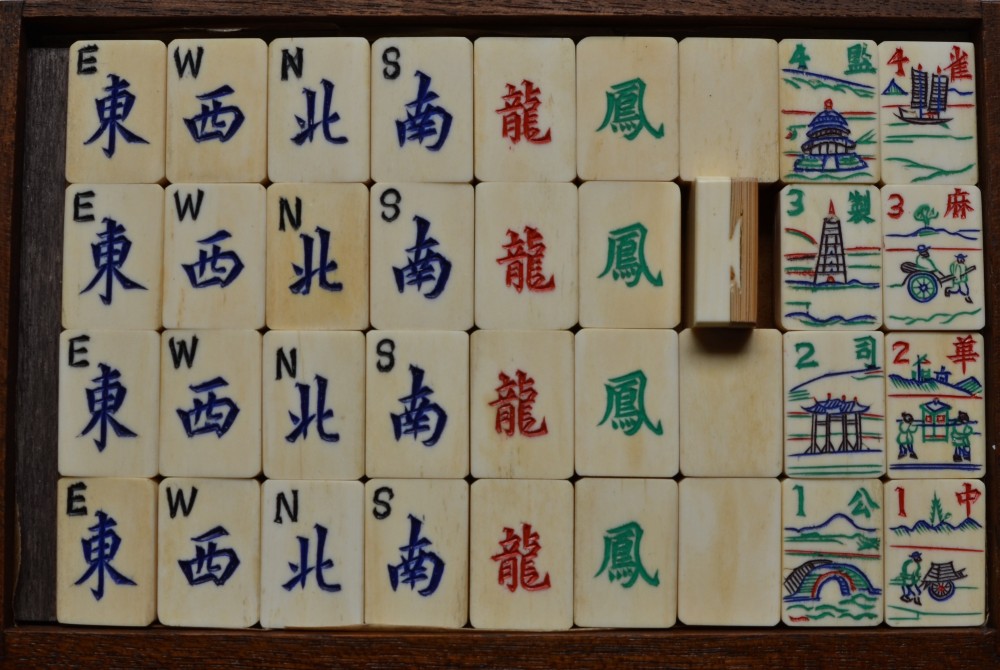 E 東 W 西 N 北 S 南 龍 鳳 4 監 4 雀
E 東 W 西 N 北 S 南 龍 鳳 3 製 3 麻
E 東 W 西 N 北 S 南 龍 鳳 2 司 2 華
E 東 W 西 N 北 S 南 龍 鳳 1 公 1 中